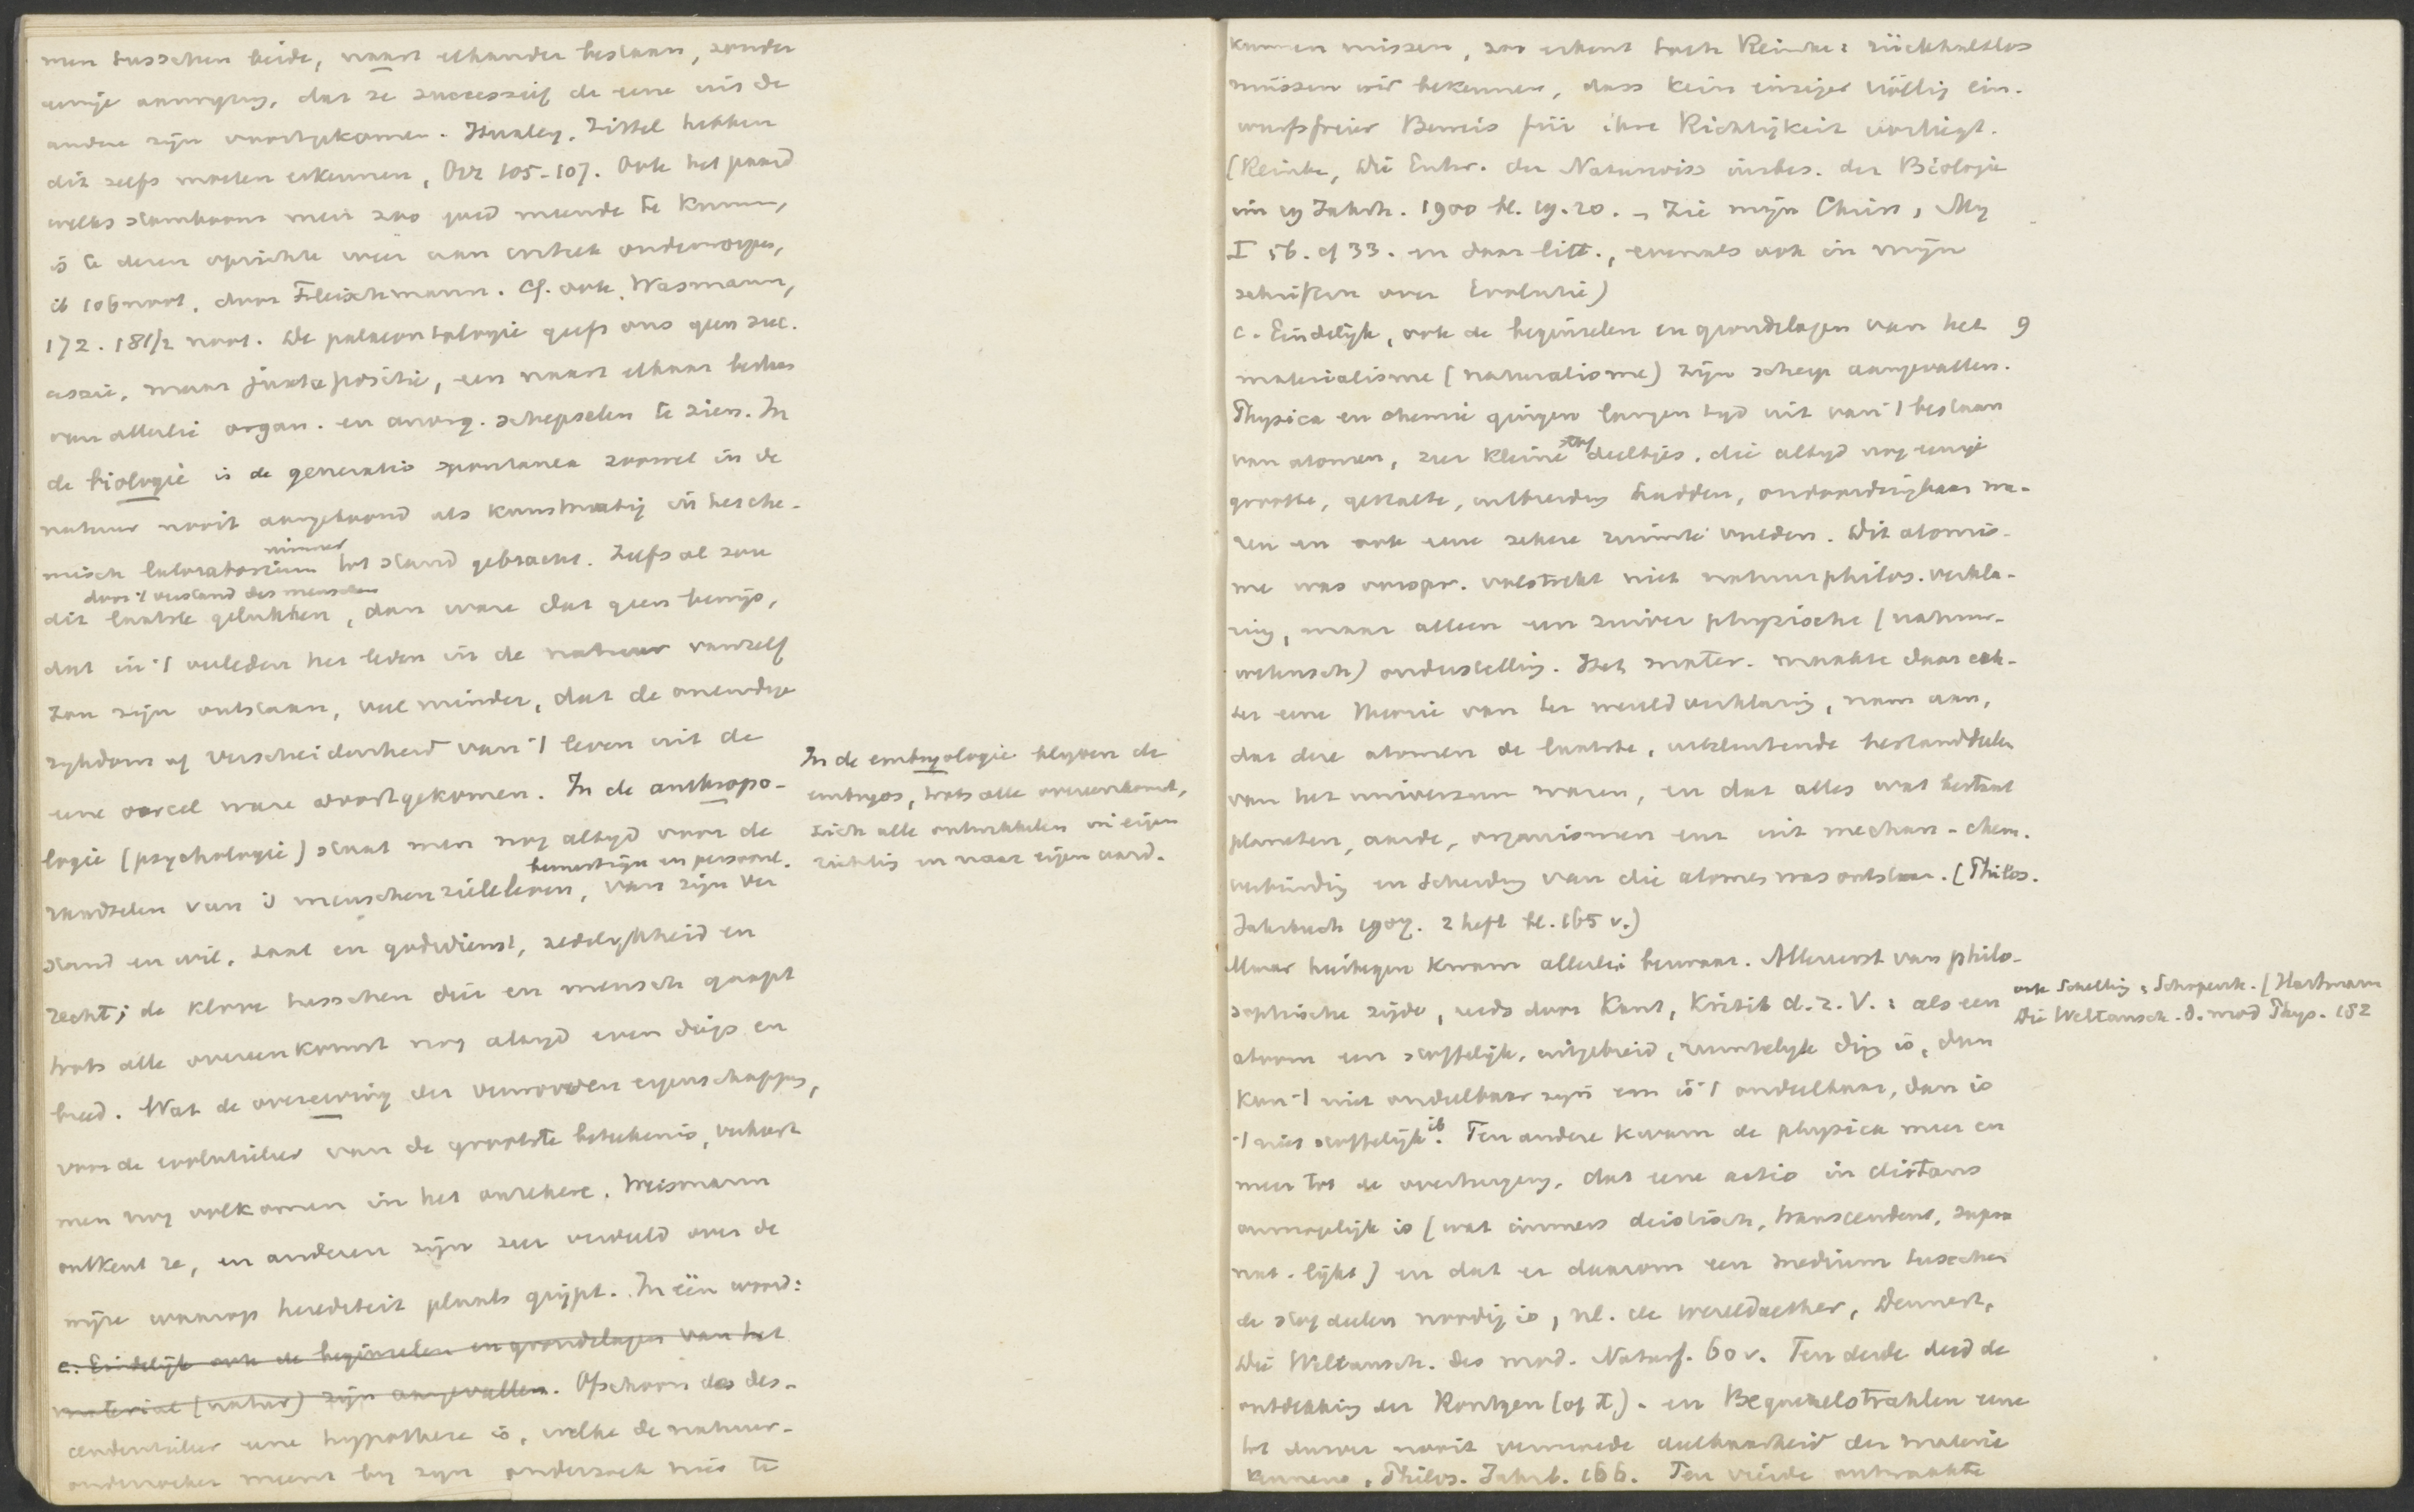 men tusschen beide, naast elkander bestaan, zonder
eenige aanwijzing, dat ze successief de eene uit de
andere zijn voortgekomen. Huxley, Zittel hebben
dit zelfs moeten erkennen, Orr 105-107. Ook het paard
welks stamboom men zoo goed meende te kennen,
is te dezen opzichte weer aan critiek onderworpen,
ib 106 noot, door Fleischmann. Cf. ook Wasmann,
172. 181/2 noot. De palaeontologie geeft ons geen suc-
cessie, maar juxtapositie, een naast elkaar bestaan
van allerlei organ. en anorg. schepselen te zien. In
de biologie is de generatio spontanea zoowel in de
natuur nooit aangetoond als kunstmatig in het che-
misch laboratorium nimmer tot stand gebracht. Zelfs al zou
dit laatste door 't verstand des menschen gelukken, dan ware dat geen bewijs,
dat in 't verleden het leven in de natuur vanzelf
zou zijn ontstaan, veel minder, dat de oneindige
rijkdom of verscheidenheid van 't leven uit de
eene oercel ware voortgekomen. In de anthropo-
logie (psychologie) staat men nog altijd voor de
raadselen van 's menschen zieleleven, bewustzijn en persoonl. van zijn ver
stand en wil, taal en godsdienst, zedelijkheid en
recht; de klove tusschen dier en mensch gaapt
trots alle overeenkomst nog altijd even diep en
breed. Wat de overerving der verworven eigenschappen,
voor de evolutieleer van de grootste beteekenis, verkeert
men nog volkomen in het onzekere. Weismann
ontkent ze, en anderen zijn zeer verdeeld over de
wijze waarop herediteit plaats grijpt. In één woord:
c. Eindelijk ook de beginselen en grondslagen van het
material (natur) zijn aangevallen. Ofschoon de des-
cendentieleer eene hypothese is, welke de natuur-
onderzoeker meent bij zijn onderzoek niet te
In de embryologie blijven de
embryos, trots alle overeenkomst,
zich alle ontwikkelen in eigen
richting en naar eigen aard.
kunnen missen, zoo erkent toch Reinke: rückhaltlos
müssen wir bekennen, dass kein einziger völlig ein-
wurfsfreier Beweis für ihre Richtigkeit vorliegt.
(Reinke, Die Entw. der Naturwiss insbes. der Biologie
im 19 Jahrh. 1900 bl. 19.20. - Zie mijn Christ,
I 56. cf 33. en daar litt., evenals ook in mijn
schriften over Evolutie)
c. Eindelijk, ook de beginselen en grondslagen van het 9
materialisme (naturalisme) zijn scherp aangevallen.
Physica en chemie gingen langen tijd uit van 't bestaan
van atomen, zeer kleine stof deeltjes, die altijd nog eenige
grootte, gestalte, uitbreiding hadden, ondoordringbaar wa-
ren en ook eene zekere ruimte vulden. Dit atomis-
me was oorspr. volstrekt niet natuurphilos. verkla-
ring, maar alleen een zuiver physische (natuur-
wetensch) onderstelling. Het mater. maakte daar ech-
ter eene theorie van ter wereldverklaring, nam aan,
dat deze atomen de laatste, uitsluitende bestanddeelen
van het universum waren, en dat alles wat bestaat
planeten, aarde, organismen enz uit mechan-chem.
verbinding en scheiding van die atomen was ontstaan. (Philos.
Jahrbuch 1907. 2 heft bl. 165 v.)
Maar hiertegen kwam allerlei bezwaar. Allereerst van philo-
sophische zijde, reeds door Kant, Kritik d. r. V.: als een
atoom een stoffelijk, uitgebreid, ruimtelijk ding is, dan
kan 't niet ondeelbaar zijn en is 't ondeelbaar, dan is
't niet stoffelijk ib. Ten andere kwam de physica meer en
meer tot de overtuiging, dat eene actio in distans
onmogelijk is (wat immers deistisch, transcendent, supra
nat. lijkt) en dat er daarom een medium tusschen
de stofdeelen noodig is, nl. de wereldaether, Dennert,
Die Weltansch. des mod. Naturf. 60 v. Ten derde deed de
ontdekking der Rontgen (of X) - en Becquerelstrahlen eene
tot dusver nooit vermoede deelbaarheid der materie
kennen, Philos. Jahrb. 166. Ten vierde ontmaakte
ook Schelling, Schopenh. (Hartmann
Die Weltansch. d. mod Phys. 182